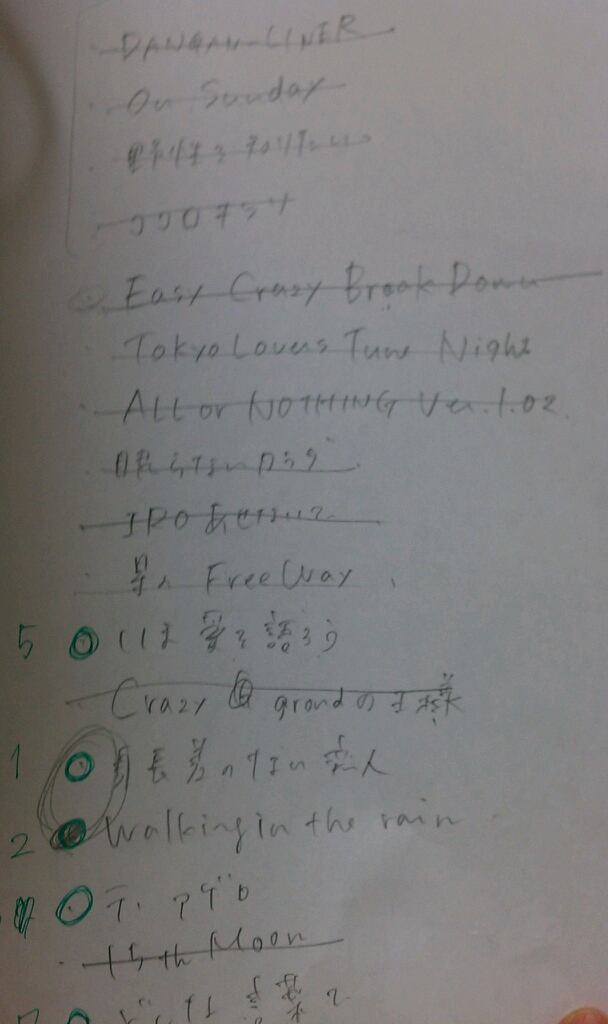 DANGAN-LINER
On Sunday
野性を知りたい
ココロオラソ
Easy Crazy Break Down
Tokyo Lovers Tune Night
All or NOTHING Ver.1.02
眠らない
IROあせないで
FreeWay
5 いま愛を語ろう
Crazy G ground の王様
1 身長差のない恋人
2 Walking in the rain
ディアゲロ
15th Moon
どんな言葉で